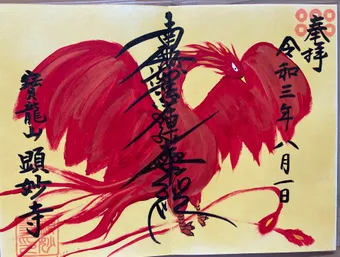 奉拝
令和三年八月一日
南無妙法蓮華経
寳龍山 顕妙寺